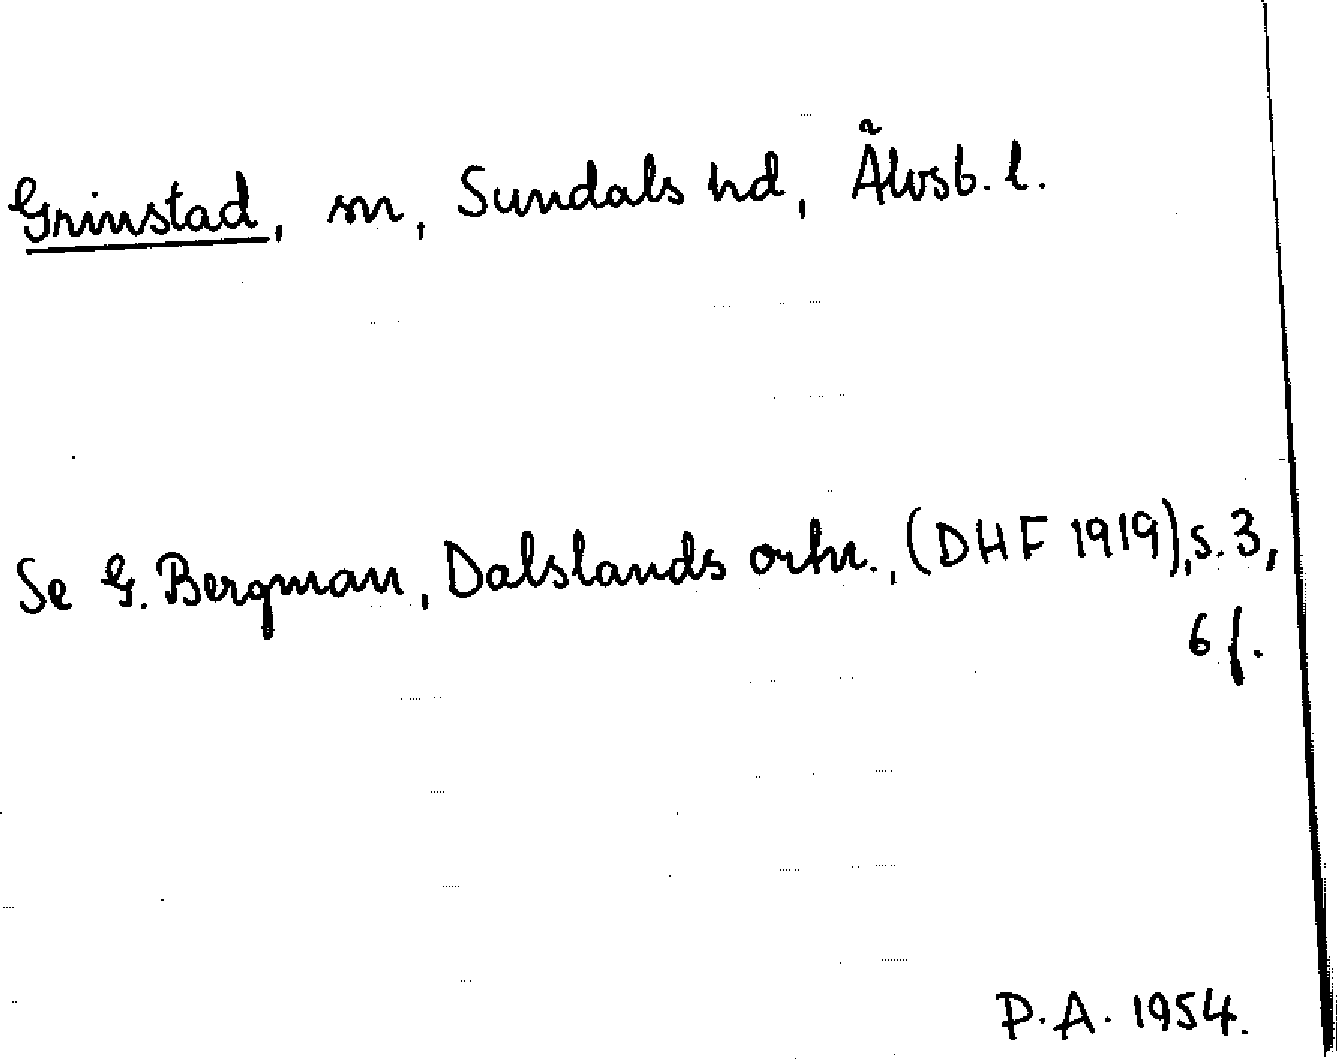 Grinstad, sn, Sundals hd, Älvsb. l.
Se G. Bergman, Dalslands ortn., (DHF 1919), s. 3,
6 f.
P.A. 1954.